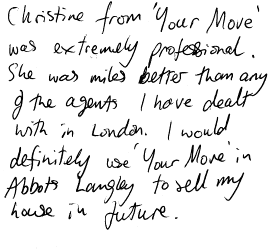 Christine from 'Your Move'
was extremely professional.
She was miles better than any
of the agents I have dealt
with in London. I would
definitely use 'Your Move' in
Abbots Langley to sell my
house in future.